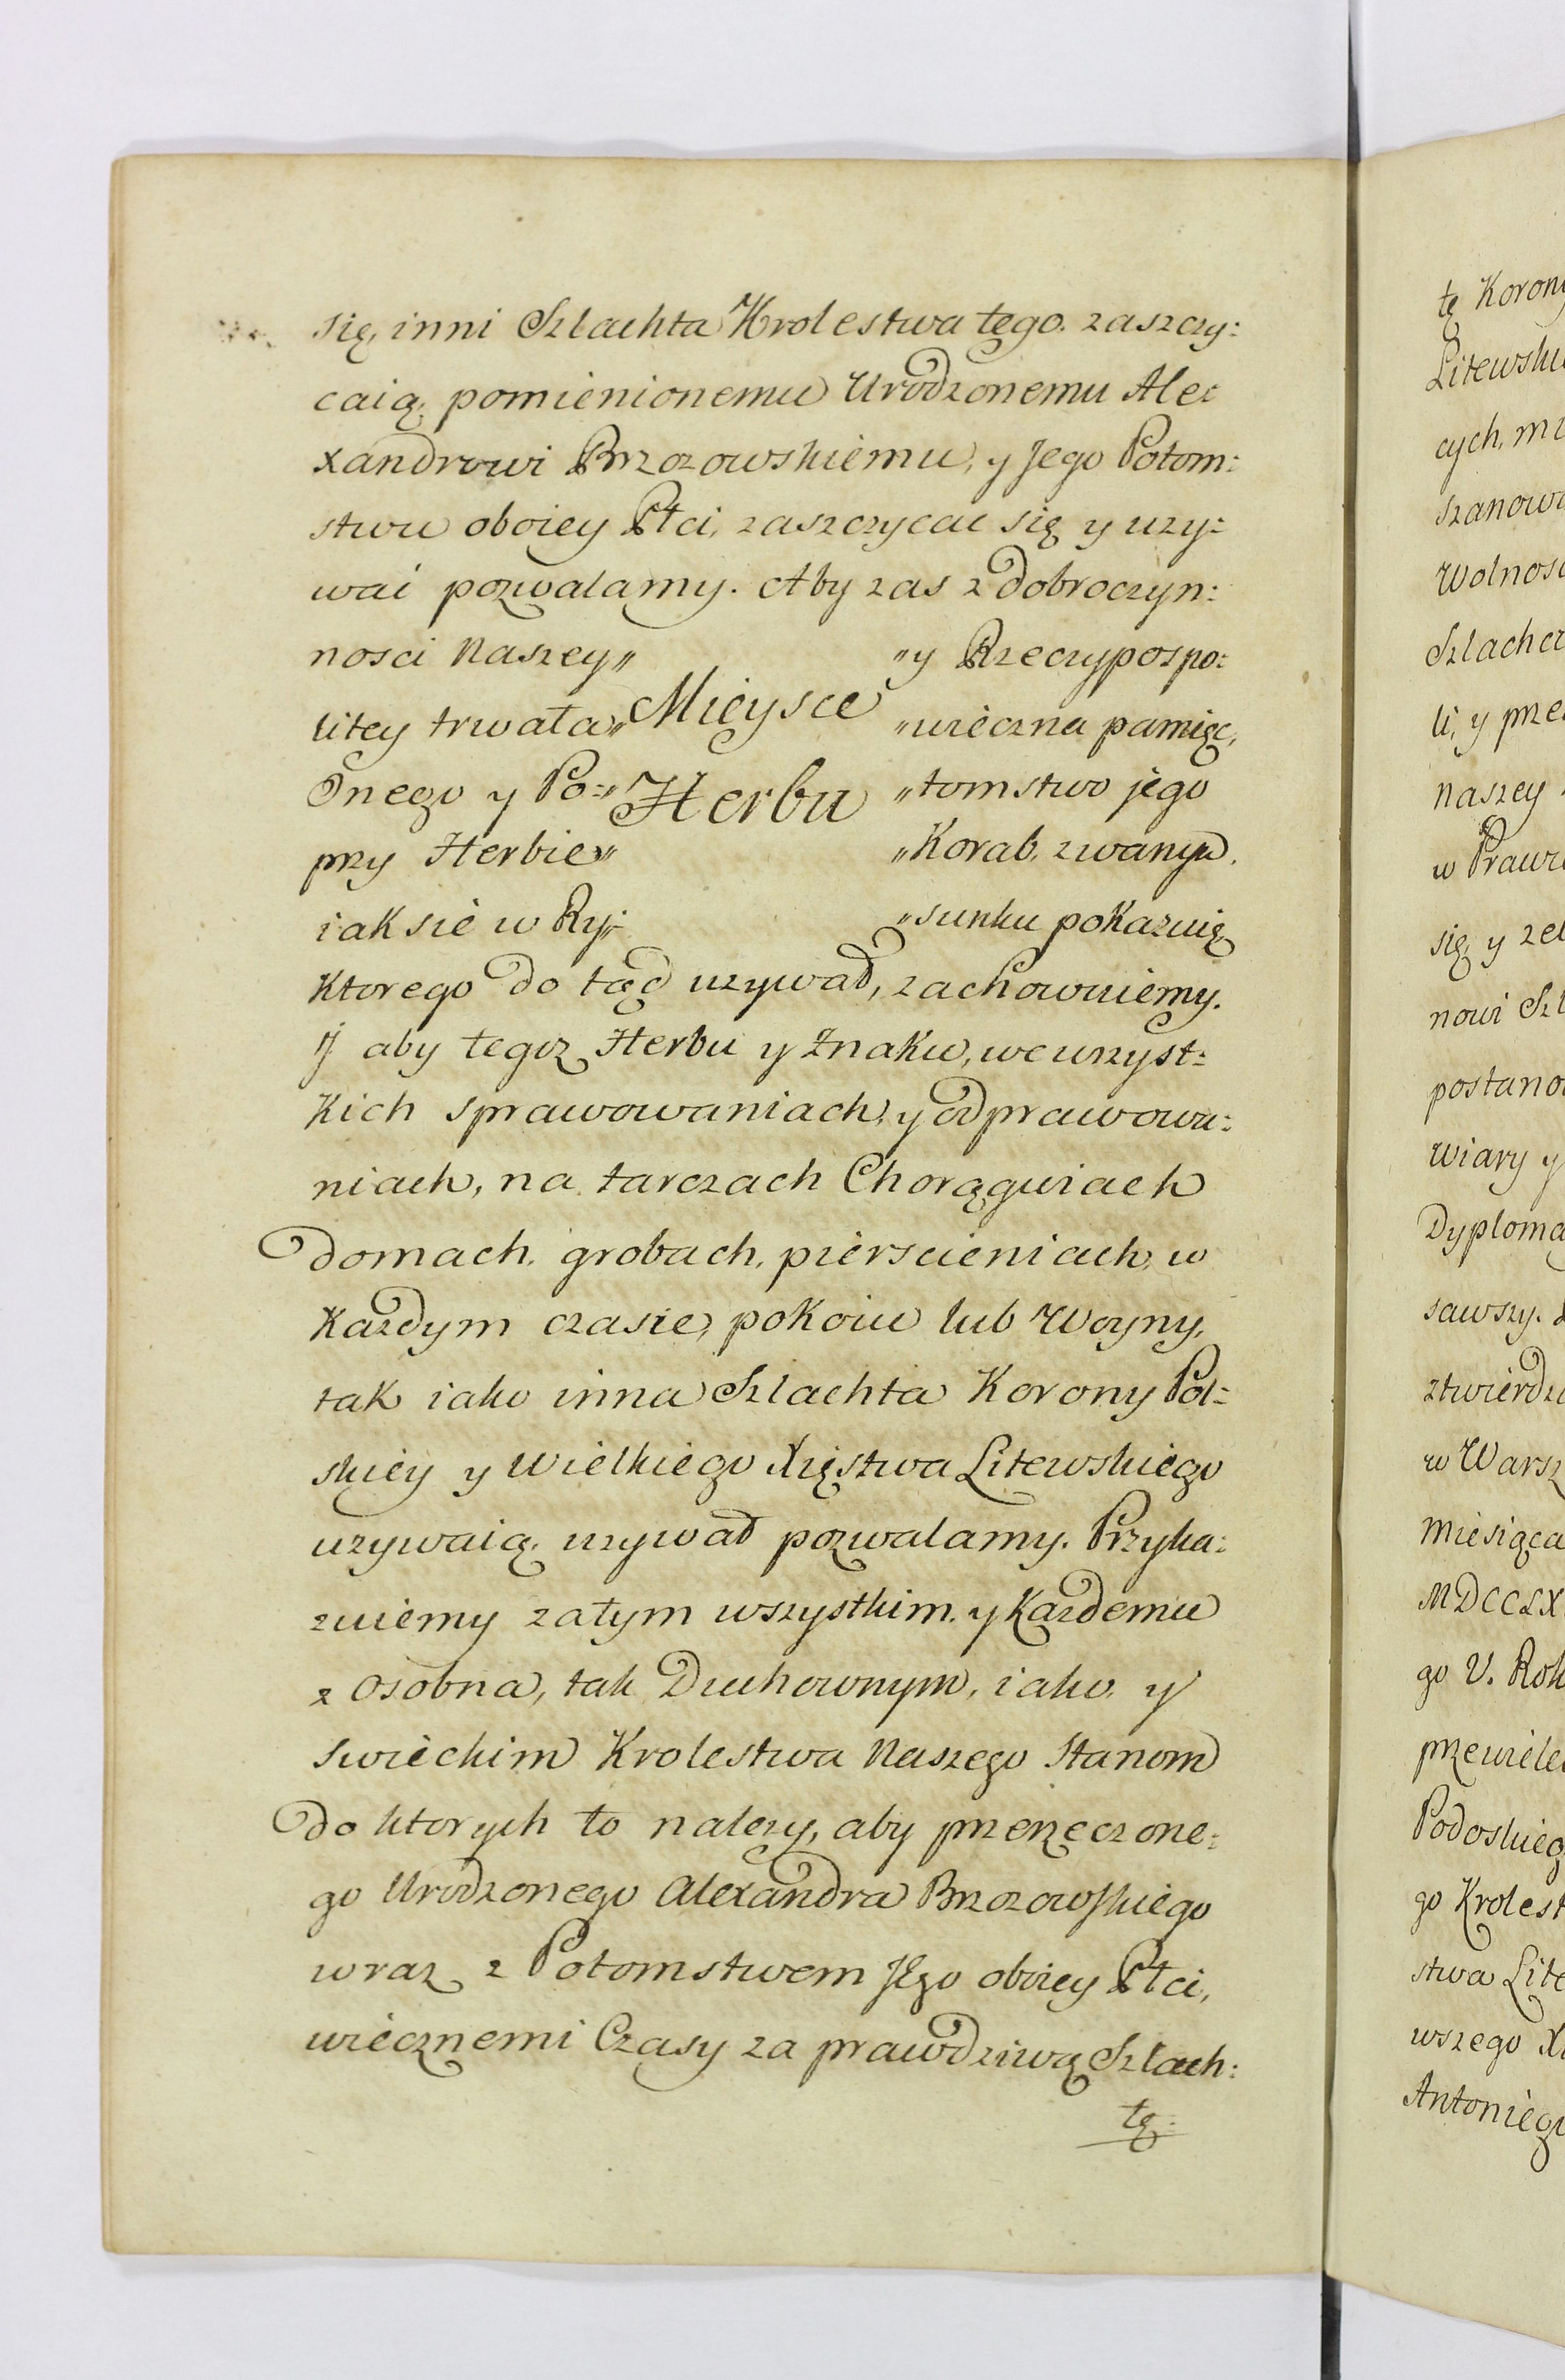 się, inni Szlachta Krolestwa tego. zaszczy:
caią, pomienionemu Urodzonemu Ale:
xandrowi Brzozowskiemu, y Jego Potom:
stwu oboiey Płci, zaszczycac się y uzy:
wać pozwalamy. Aby zas z dobroczyn:
nosci Naszey„ „y Rzeczypospo:
litey trwała„ Mieysce „wieczna pamięc,
Onego y Po:„ Herbu „tomstwo jego
przy Herbie„ „Korab, zwanym,
iaksie w Ry: „sunku pokazuię
Ktorego do tąd uzywał, zachowuiemy.
Ij aby tegoz Herbu y Znaku, we wszyst:
Kich sprawowaniach, y odprawowa:
niach, na tarczach Chorągwiach
domach, grobach, pierscieniach, w
Kazdym czasie, pokoiu lub Woyny,
tak iako inna Szlachta Korony Pol:
skiey y Wielkiego Xięstwa Litewskiego
uzywaią, uzywał pozwalamy. Przyka:
zuiemy zatym wszystkim, y Kazdemu
z osobna, tak Duchownym, iako, y
Swieckim Krolestwa Naszego Stanom
do ktorych to nalezy, aby przerzeczone:
go Urodzonego Alexandra Brzozowskiego
wraz z Potomstwem Jego oboiey Płci,
wiecznemi Czasy za prawdziwą Szlach:
tę:
tę Koron
Litewski
cych, m
szanow
Wolnosc
Szlachec
li, y prze
naszey
w Praw
się, y ze
nowi Szl
postano
Wiary y
Dyploma
sawszy.
ztwierdz
w Warsz
Miesiąca
MDCCLX
go V. Rok
przewiele
Podoskieg
go Krolest
stwa Lite
wszego X
Antoniego